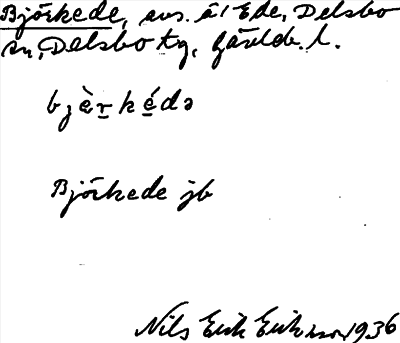 Björkede, avs. å 1 Ede, Delsbo
sn, Delsbo tg, Gävleb. l.
bjè̀rkédə
Björkede jb
Nils Erik Eriksson 1936